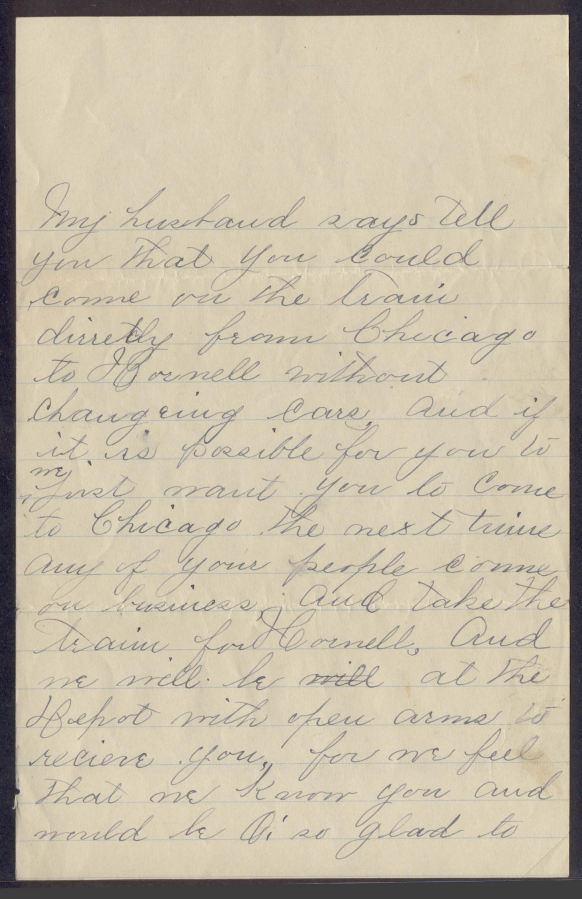 My husband says tell
you that you could
come on the train
dirretly from Chicago
to Hornell without
changeing cars, and if
it is possible for you to
we
just want you to come
to Chicago the next time
any of your people come
on business, and take the
train for Hornell, and
we will be will at the
Depot with open arms to
recieve you, for we feel
that we know you and
would be O; so glad to